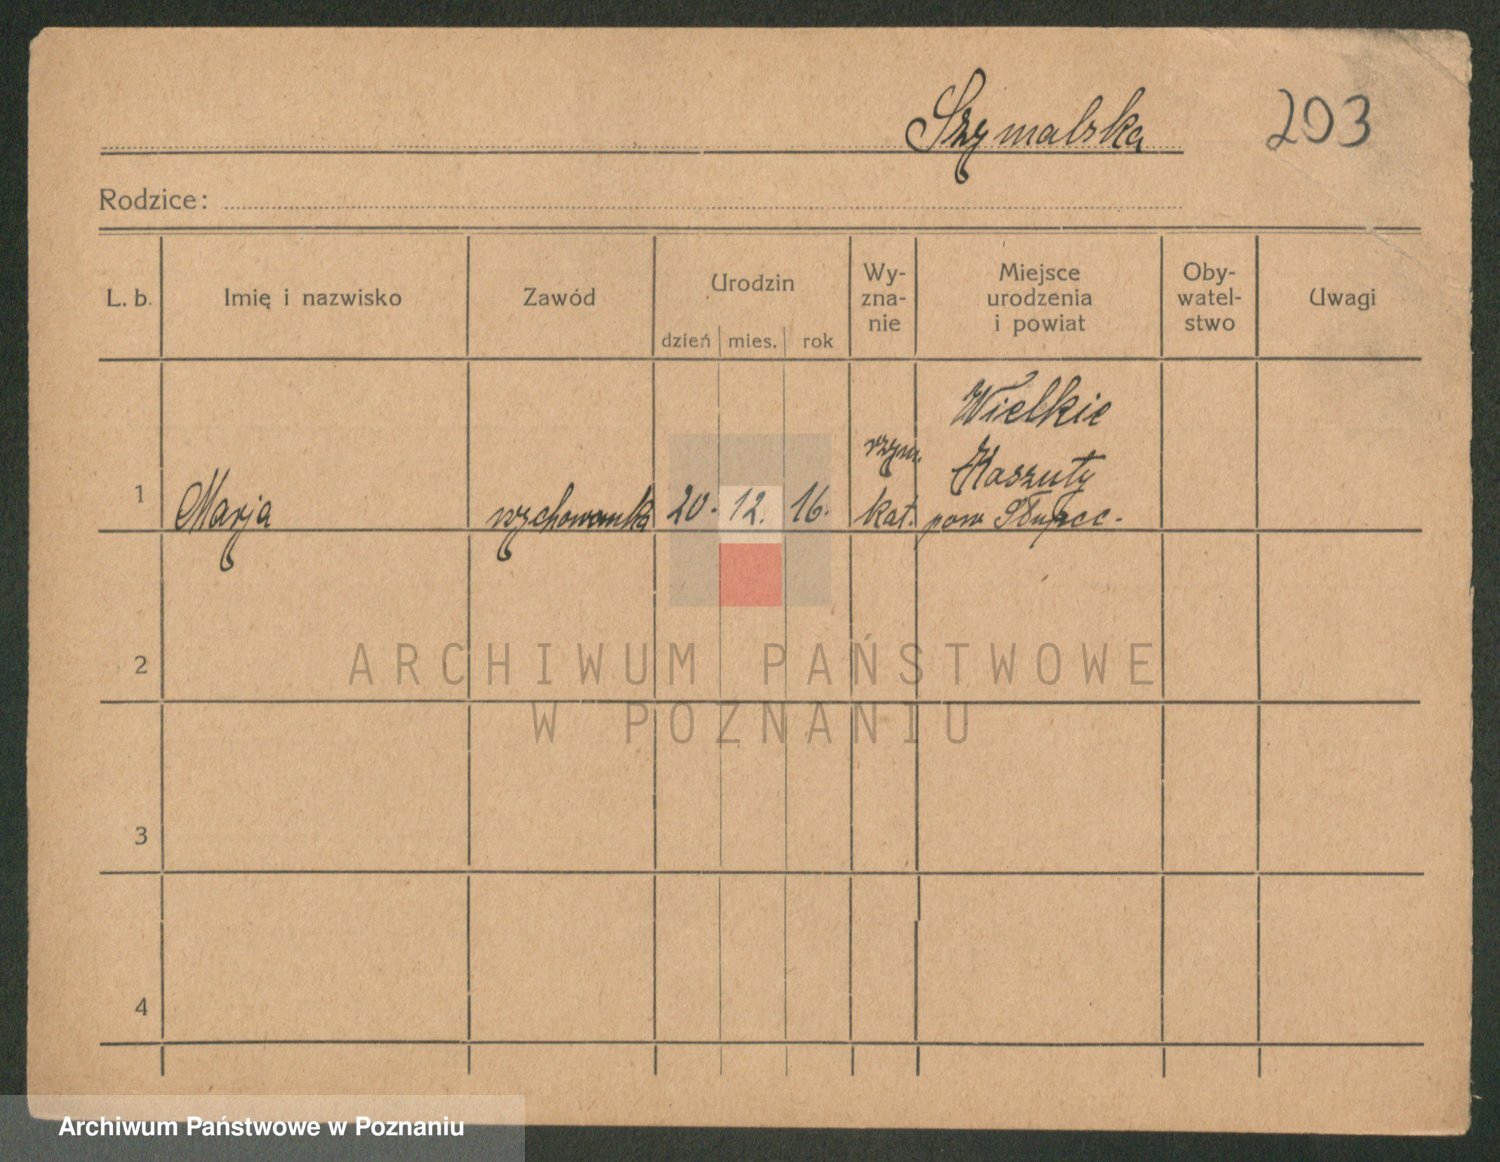 Szymalska 203
Rodzice:
L. b. Imię i nazwisko Zawód Urodzin Wy-zna-nie Miejsce urodzenia i powiat Oby-watel-stwo Uwagi
dzień mies. rok
1 Marja wychowanka 20. 12. 16. rzym. kat. Wielkie Kaszuty pow Słupcc.
2
3
4
ARCHIWUM PAŃSTWOWE
W POZNANIU
Archiwum Państwowe w Poznaniu